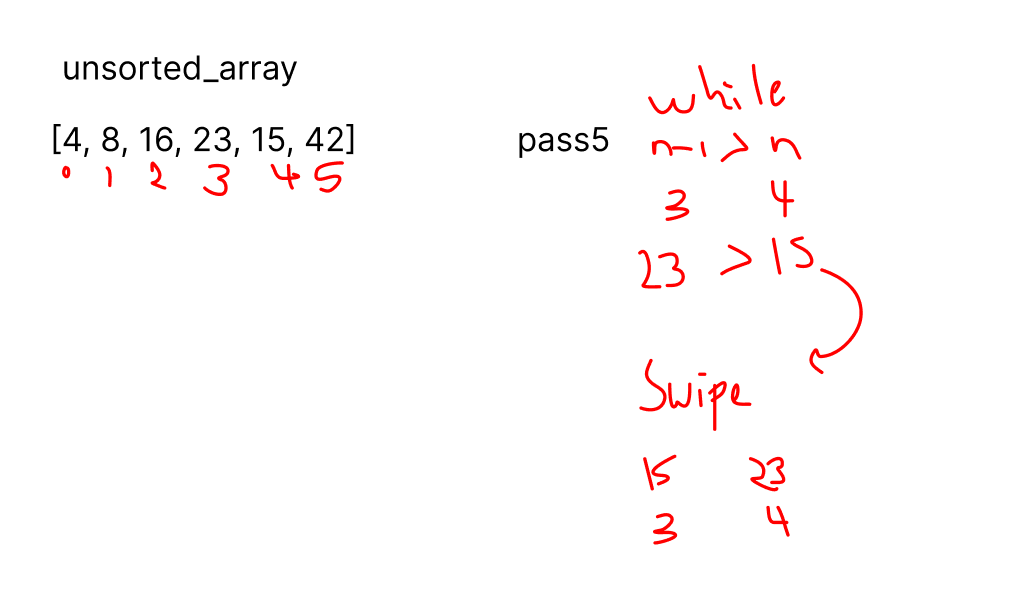 unsorted_array
[4, 8, 16, 23, 15, 42]
0 1 2 3 4 5
pass5
while
n-1 > n
3 4
23 > 15
Swipe
15 23
3 4